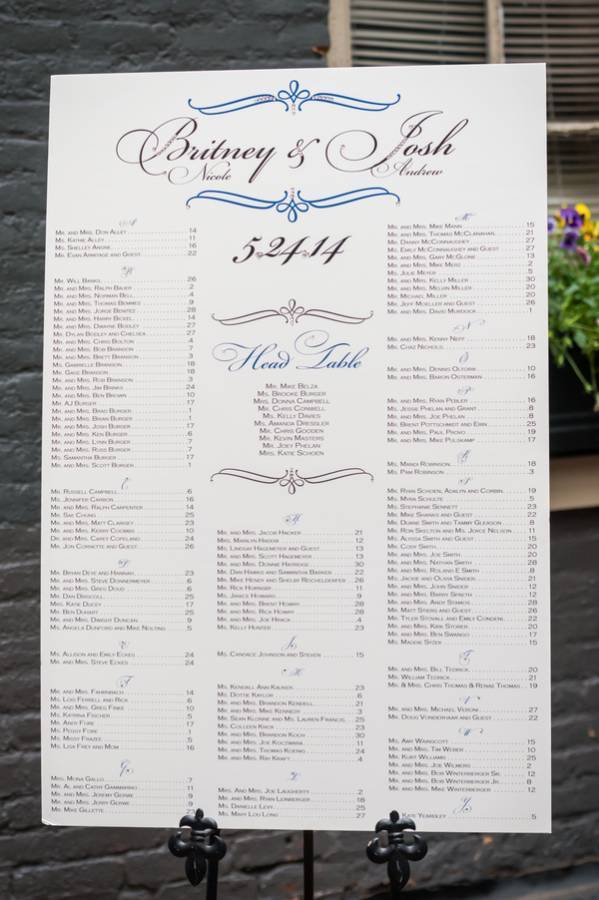 Britney & Josh
Nicole Andrew
5.24.14
A
Mr. and Mrs. Don Alley 14
Ms. Kathie Alley 11
Ms. Shelley Andre 16
Mr. Evan Armitage and Guest 22
B
Mr. Will Banks 26
Mr. and Mrs. Ralph Bauer 2
Mr. and Mrs. Norman Bell 4
Mr. and Mrs. Thomas Bemmes 9
Mr. and Mrs. Jorge Benitez 28
Mr. and Mrs. Harry Bickel 14
Mr. and Mrs. Dwayne Bodley 27
Mr. Dylan Bodley and Chelsea 27
Mr. and Mrs. Chris Bolton 4
Mr. and Mrs. Bob Branson 7
Mr. and Mrs. Brett Branson 3
Ms. Gabrielle Branson 18
Mr. Gage Branson 18
Mr. and Mrs. Rob Branson 3
Mr. and Mrs. Jim Brinks 24
Mr. and Mrs. Ben Brown 10
Mr. AJ Burger 17
Mr. and Mrs. Brad Burger 1
Mr. and Mrs. Brian Burger 1
Mr. and Mrs. Josh Burger 17
Mr. and Mrs. Ken Burger 6
Mr. and Mrs. Lynn Burger 7
Mr. and Mrs. Russ Burger 7
Ms. Samantha Burger 17
Mr. and Mrs. Scott Burger 1
C
Mr. Russell Campbell 6
Ms. Jennifer Carson 16
Mr. and Mrs. Ralph Carpenter 14
Ms. Sae Chung 25
Mr. and Mrs. Matt Clarkey 23
Mr. and Mrs. Kerry Coomas 10
Dr. and Mrs. Carey Copeland 24
Mr. Jon Cornette and Guest 26
D
Mr. Bryan Deye and Hannah 23
Mr. and Mrs. Steve Donnermeyer 6
Mr. and Mrs. Greg Doud 6
Mr. Dan Driscoll 25
Mrs. Katie Ducey 17
Mr. Ben Duhamy 25
Mr. and Mrs. Dwight Duncan 9
Ms. Angela Dunford and Mike Nolting 5
E
Ms. Allison and Emily Eckes 24
Mr. and Mrs. Steve Eckes 24
F
Mr. and Mrs. Fahrnbach 14
Ms. Lois Ferrell and Rick 6
Mr. and Mrs. Greg Finke 10
Ms. Katrina Fischer 5
Mr. Andy Fore 17
Ms. Peggy Fore 1
Ms. Missy Frazee 5
Ms. Lisa Frey and Mom 16
G
Mrs. Mona Gallo 7
Mr. Al and Cathy Gammarino 11
Mr. and Mrs. Jeremy Gerwe 9
Mr. and Mrs. Jerry Gerwe 9
Mr. Mike Gillette 23
Head Table
Mr. Mike Belza
Ms. Brooke Burger
Mrs. Donna Campbell
Mr. Chris Conwell
Ms. Kelly Davies
Ms. Amanda Dressler
Mr. Chris Gooden
Mr. Kevin Masters
Mr. Joey Phelan
Mrs. Katie Schoen
H
Mr. and Mrs. Jacob Hacker 21
Mrs. Marilyn Haddix 12
Ms. Lindsay Hagemeyer and Guest 13
Mr. and Mrs. Scott Hagemeyer 13
Mr. and Mrs. Donnie Hartridge 30
Mr. Dan Hawks and Samantha Barker 22
Mr. Mike Hendy and Shelby Recheldderfer 26
Mr. Rick Horniney 11
Ms. Janice Horniney 9
Mr. and Mrs. Brent Howry 28
Mr. and Mrs. Rick Howry 28
Mr. and Mrs. Joe Hrnck 4
Ms. Kelly Hunter 23
J
Ms. Candace Johnson and Steven 15
K
Ms. Kendall Ann Kauser 23
Ms. Dottie Kaylor 6
Mr. and Mrs. Brandon Kendell 21
Mr. and Mrs. Mike Kennedy 3
Mr. Sean Klonne and Ms. Lauren Francis 25
Ms. Colleen Knox 23
Mr. and Mrs. Brandon Koch 30
Mr. and Mrs. Joe Koczwara 11
Mr. and Mrs. Thomas Koenig 24
Mr. and Mrs. Ray Kraft 4
L
Mr. And Mrs. Joe Laugherty 2
Mr. and Mrs. Ryan Lionbarger 18
Ms. Danielle Levy 25
Ms. Mary Lou Long 27
M
Mr. and Mrs. Mike Mann 15
Mr. and Mrs. Thomas McClanahan 21
Mr. Danny McConnaughey 27
Ms. Emily McConnaughey and Guest 27
Mr. and Mrs. Gary McGlone 13
Mr. and Mrs. Mike Merz 2
Ms. Julie Meyer 5
Mr. and Mrs. Kelly Miller 30
Mr. and Mrs. Melvin Miller 20
Mr. Michael Miller 20
Mr. Jeff Moeller and Guest 26
Mr. and Mrs. David Murdock 1
N
Mr. and Mrs. Kenny Neff 18
Mr. Chaz Nicholis 23
O
Mr. and Mrs. Dennis Oligmik 10
Mr. and Mrs. Baron Osterman 16
P
Mr. and Mrs. Ryan Pebler 16
Ms. Jesse Phelan and Grant 8
Mr. and Mrs. Joe Phelan 8
Mr. Brent Pottschmidt and Erin 25
Mr. and Mrs. Paul Prono 19
Mr. and Mrs. Mike Pulskamp 17
R
Ms. Mandi Robinson 18
Ms. Pam Robinson 3
S
Mr. Ryan Schoen, Adalyn and Corbin 19
Ms. Myra Schulte 5
Ms. Stephanie Sennett 23
Mr. Mike Shanks and Guest 22
Mr. Duane Smith and Tammy Gleason 8
Mr. Ron Skelton and Ms. Joyce Nelson 11
Ms. Alyssa Smith and Guest 15
Mr. Cody Smith 20
Mr. and Mrs. Joe Smith 20
Mr. and Mrs. Nathan Smith 28
Mr. and Mrs. Roland E Smith 8
Ms. Jackie and Olivia Snider 21
Mr. and Mrs. John Snider 12
Mr. and Mrs. Barry Spaeth 12
Mr. and Mrs. Andy Stamos 28
Mr. Matt Stiers and Guest 26
Mr. Tyler Stovall and Emily Condeni 22
Mr. and Mrs. Kirk Storer 20
Mr. and Mrs. Ben Swango 17
Ms. Maddie Spizek 15
T
Mr. and Mrs. Bill Tedrick 20
Mr. William Tedrick 21
Mr. & Mrs. Chris Thomas & Renae Thomas 19
V
Mr. and Mrs. Michael Veroni 27
Mr. Doug Vonderhaar and Guest 22
W
Ms. Amy Waingott 15
Mr. and Mrs. Tim Weber 10
Mr. Kurt Williams 25
Mr. and Mrs. Joe Wilmers 2
Mr. and Mrs. Bob Winterberger Sr. 12
Mr. and Mrs. Bob Winterberger Jr. 8
Mr. and Mrs. Mike Winterberger 12
Y
Kate Yeardley 5